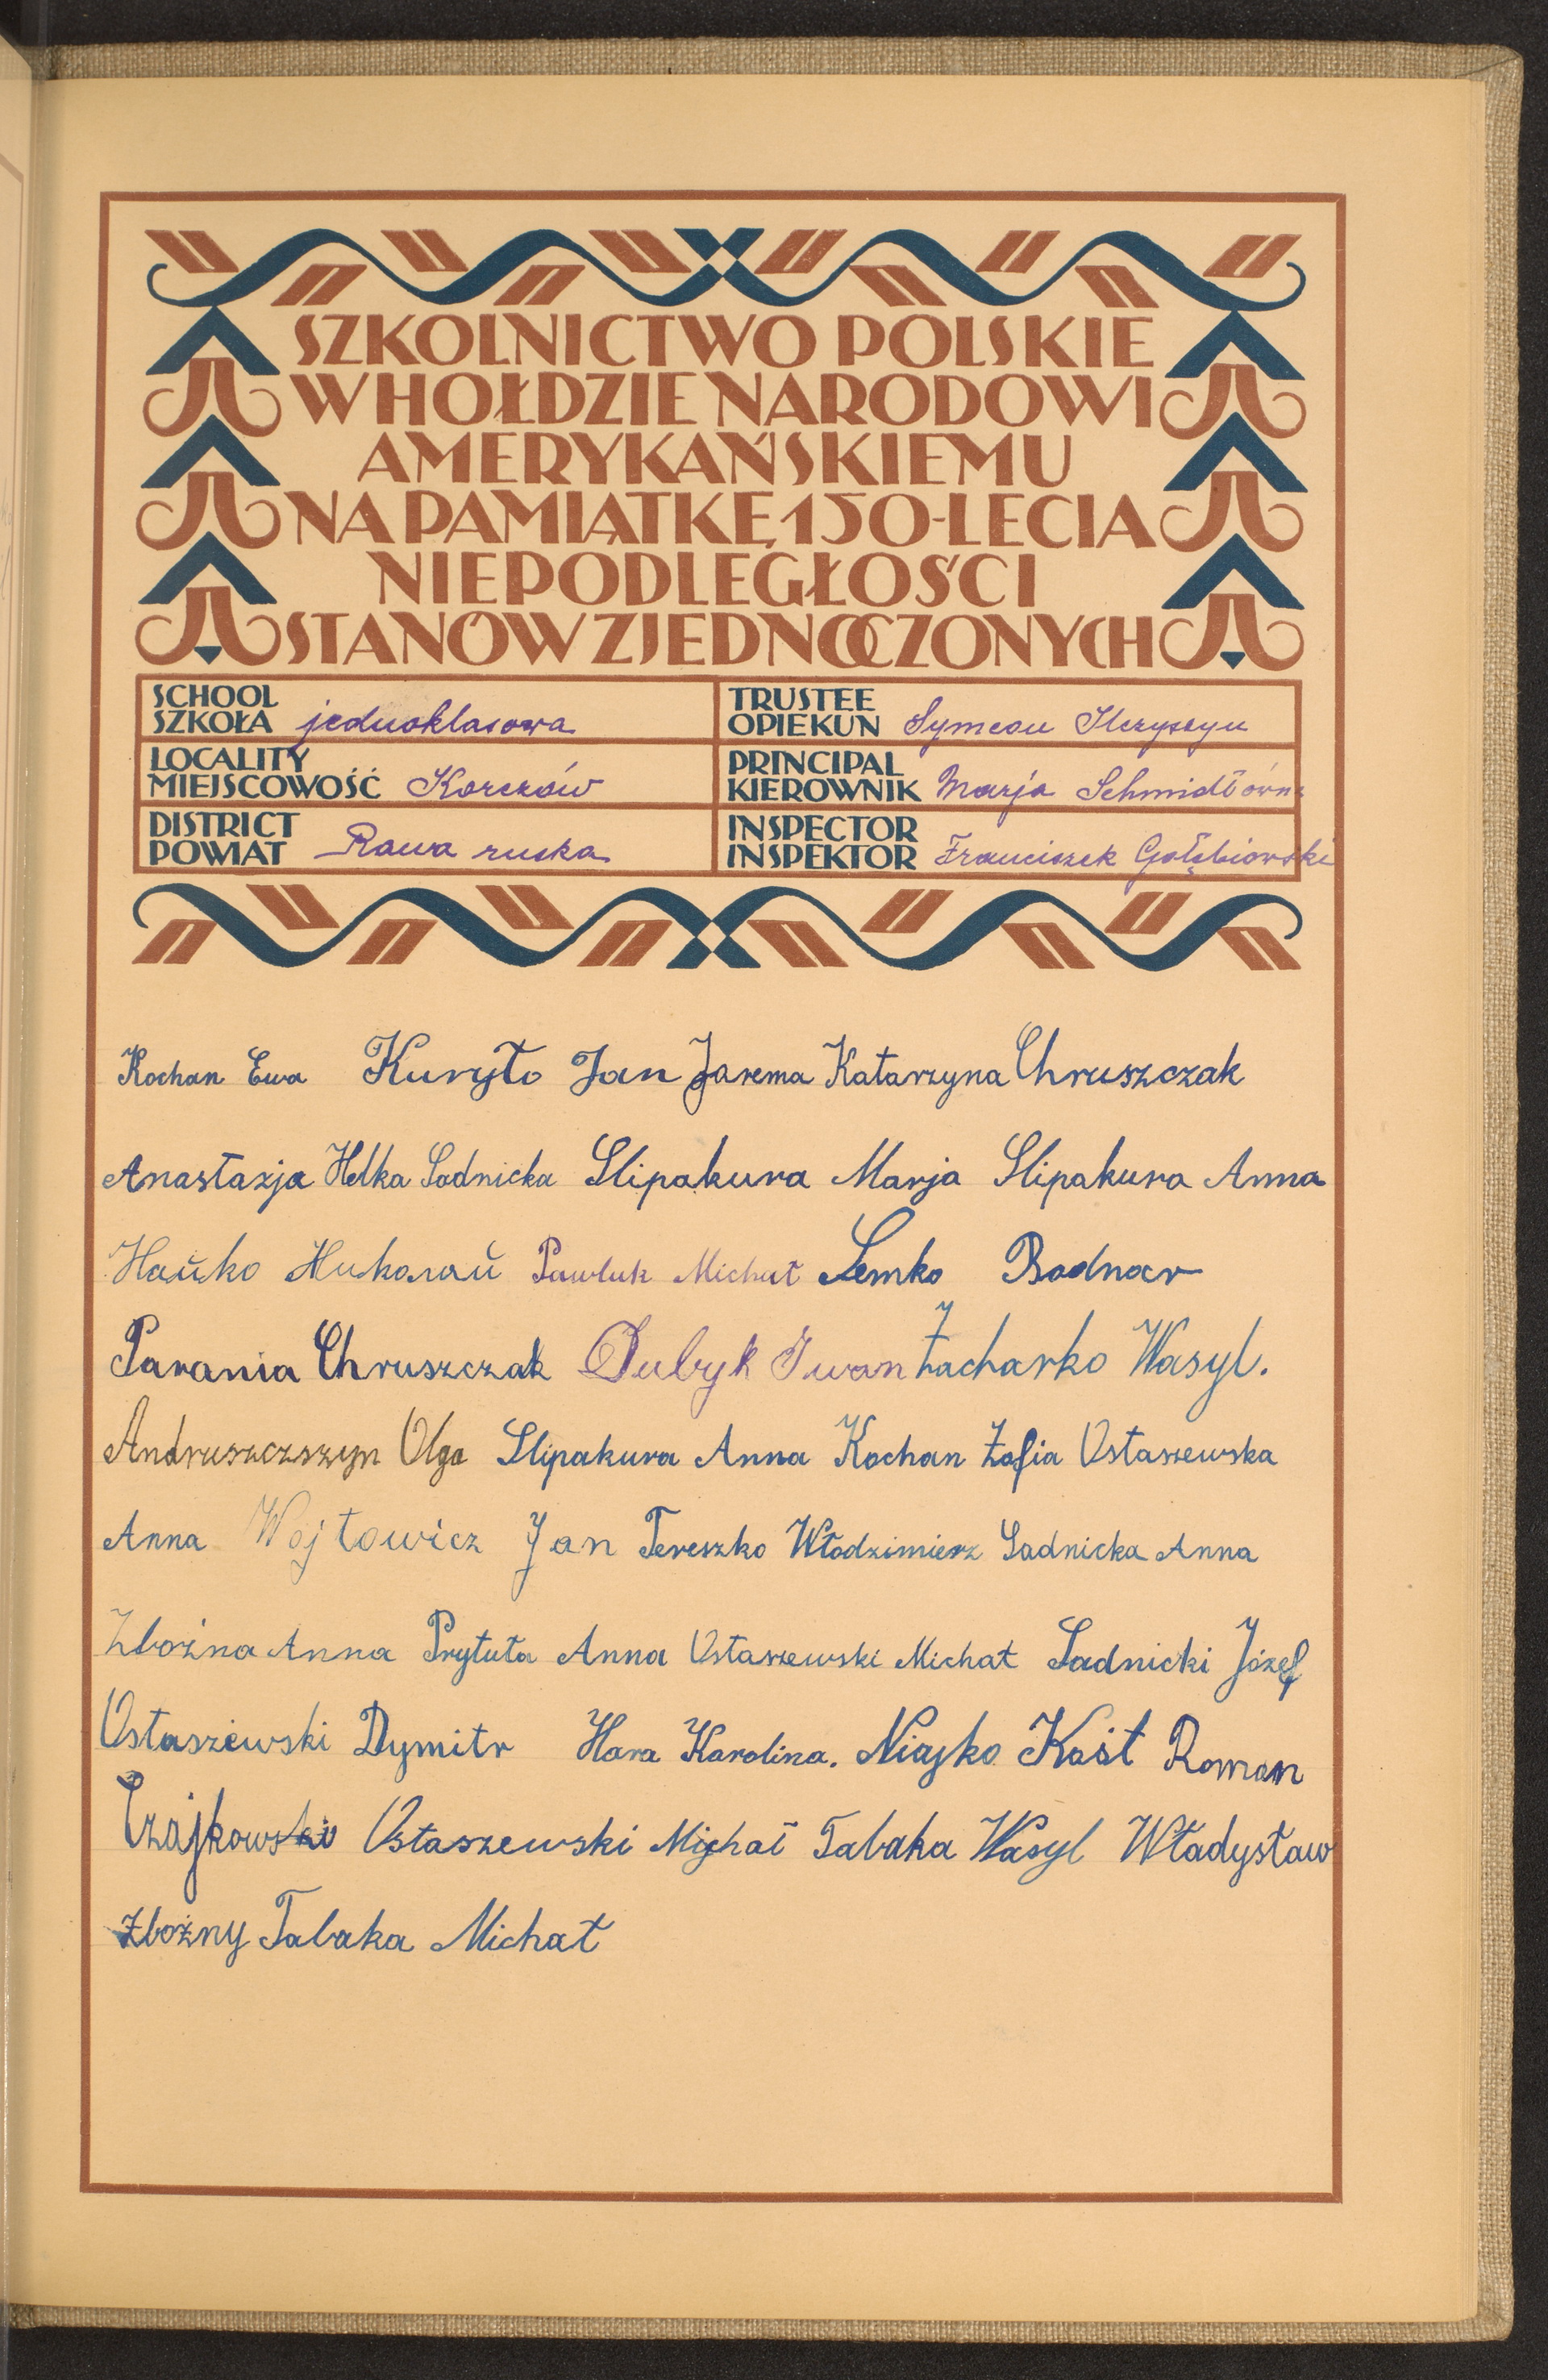 SZKOLNICTWO POLSKIE
W HOŁDZIE NARODOWI
AMERYKAŃSKIEMU
NA PAMIĄTKĘ 150-LECIA
NIEPODLEGŁOŚCI
STANÓW ZJEDNOCZONYCH
SCHOOL
SZKOŁA jednoklasowa
TRUSTEE
OPIEKUN Symeon Ilczyszyn
LOCALITY
MIEJSCOWOŚĆ Korczów
PRINCIPAL
KIEROWNIK Marja Schmidtówna
DISTRICT
POWIAT Rawa ruska
INSPECTOR
INSPEKTOR Franciszek Gołębiowski
Kochan Ewa Kuryło Jan Jarema Katarzyna Chruszczak
Anastazja Helka Sadnicka Slipakura Marja Slipakura Anna
Найко Николай Pawluk Michał Semko Bodnar
Parania Chruszczak Dubyk Iwan Zacharko Wasyl.
Andruszczszyn Olga Slipakura Anna Kochan Zofia Ostaszewska
Anna Wojtowicz Jan Tereszko Włodzimierz Sadnicka Anna
Zbożna Anna Prytuła Anna Ostaszewski Michał Sadnicki Józef
Ostaszewski Dymitr Hara Karolina. Niajko Kośt Roman
Czajkowski Ostaszewski Michał Tabaka Wasyl Władysław
Zbożny Tabaka Michał